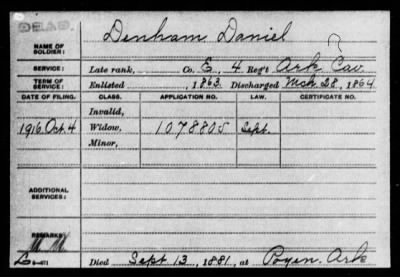 DEAD.
NAME OF SOLDIER: Denham, Daniel
SERVICE: Late rank, Co. E, 4 Reg't Ark Cav.
TERM OF SERVICE: Enlisted , 1863. Discharged Mch 28, 1864
DATE OF FILING. CLASS. APPLICATION NO. LAW. CERTIFICATE NO.
Invalid,
1916 Oct. 4 Widow, 1078805 Sept.
Minor,
ADDITIONAL SERVICES:
REMARKS:
Died Sept 13, 1881, at Poyen, Ark